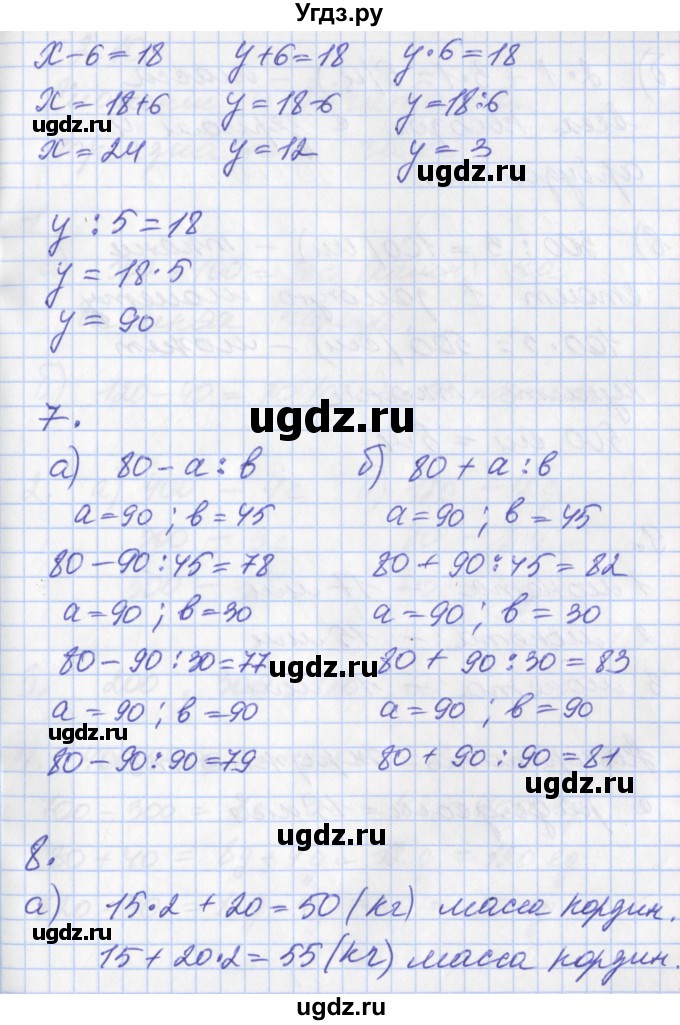 Угдз.ру
x-6=18 y+6=18 y·6=18
x=18+6 y=18-6 y=18:6
ugdz.ru
x=24 y=12 y=3
ugdz.ru
y:5=18
y=18·5
y=90
7.
ugdz.ru
а) 80-a:в б) 80+a:в
a=90; в=45 a=90; в=45
80-90:45=78 80+90:45=82
a=90; в=30 a=90; в=30
80-90:30=77 80+90:30=83
ugdz.ru
a=90; в=90 a=90; в=90
ugdz.ru
80-90:90=79 80+90:90=81
ugdz.ru
8.
а) 15·2+20=50(кг) масса
ugdz.ru
15+20·2=55(кг) масса
ugdz.ru
ugdz.ru